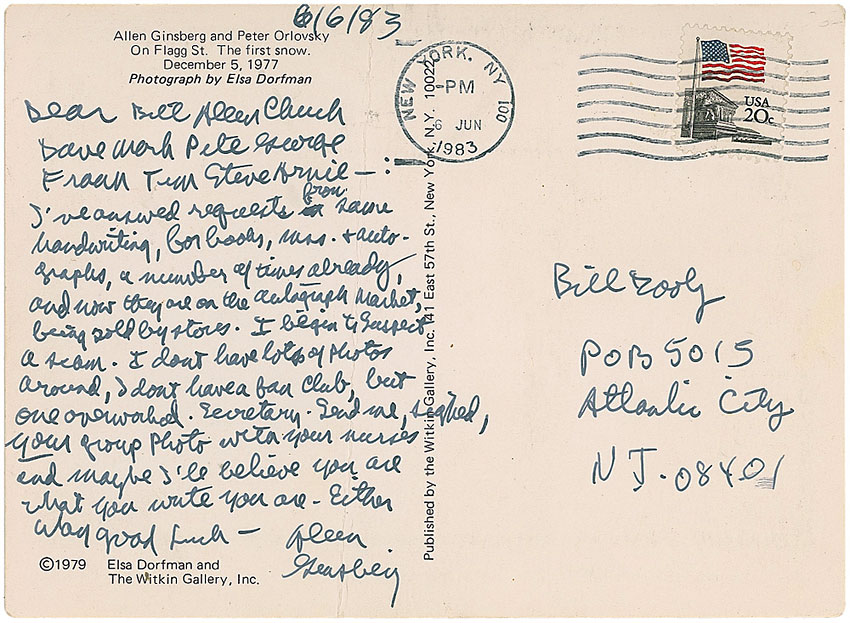 6/6/83
Allen Ginsberg and Peter Orlovsky
On Flagg St. The first snow.
December 5, 1977
Photograph by Elsa Dorfman
Dear Bill Allen Chuck
Dave Mark Pete George
Frank Tim Steve Arnie — :
I've answed requests from same
handwriting, for books, mss. & auto-
graphs, a number of times already,
and now they are on the autograph market,
being sold by stores. I begin to suspect
a scam. I dont have lots of photos
around, I dont have a fan club, but
one overworked. Secretary. Send me, signed,
your group photo with your nurses
and maybe I'll believe you are
what you write you are - Either
way good luck —
Allen
Ginsberg
©1979 Elsa Dorfman and
The Witkin Gallery, Inc.
Published by the Witkin Gallery, Inc. 41 East 57th St., New York, N.Y. 10022
NEW YORK, NY 100
PM
6 JUN
1983
USA
20c
Bill
POB 5015
Atlantic City
NJ. 08401